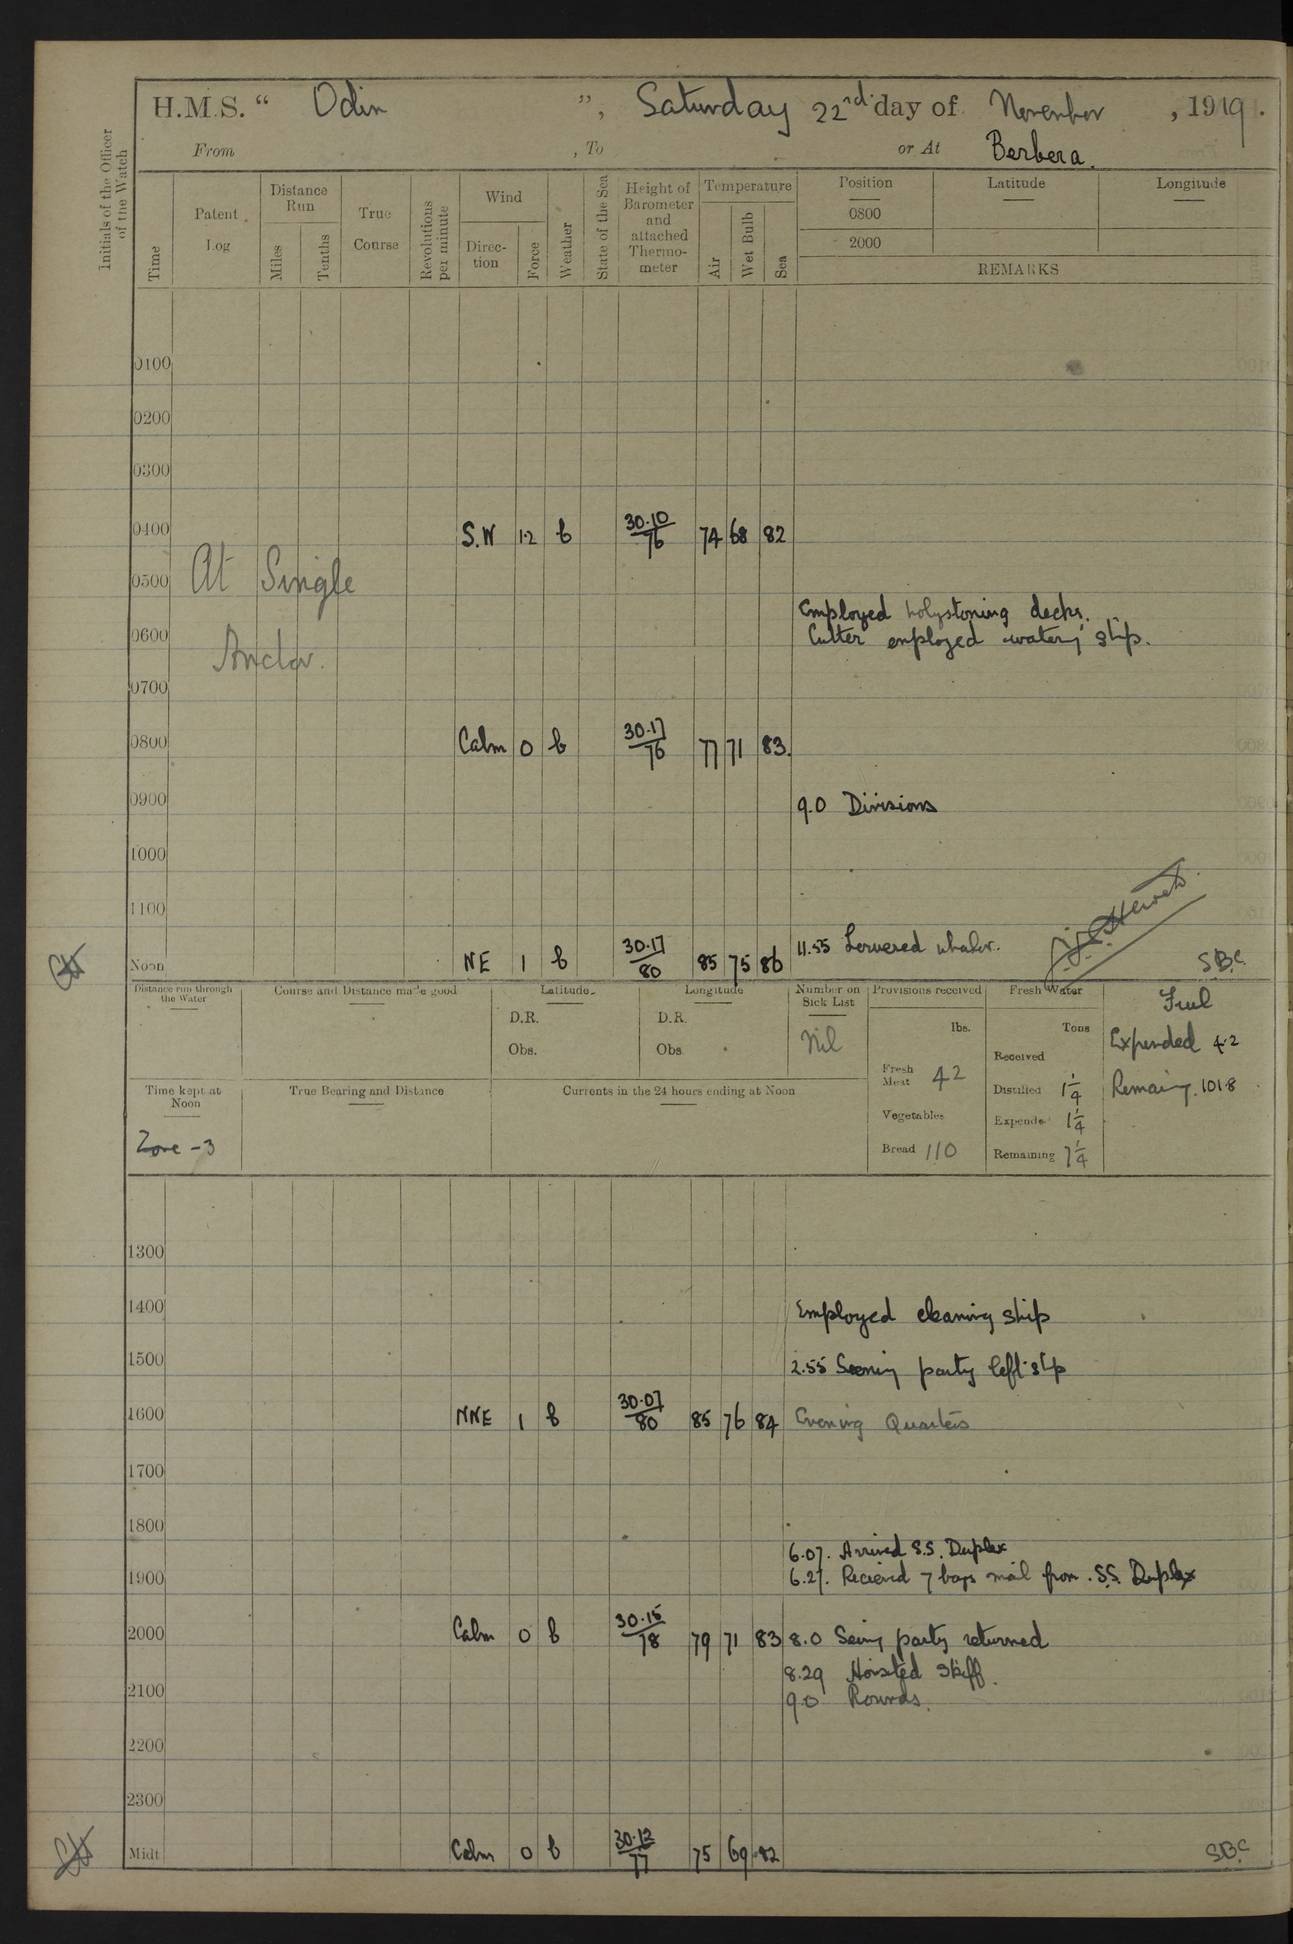 H.M.S. “ Odin ”, Saturday 22nd day of November, 1919.
From , To or At Berbera.
Initials of the Officer of the Watch
Time
Patent Log
Distance Run
Miles
Tenths
True Course
Revolutions per minute
Wind
Direction
Force
Weather
State of the Sea
Height of Barometer and attached Thermometer
Temperature
Air
Wet Bulb
Sea
Position Latitude Longitude
0800
2000
REMARKS
0100
0200
0300
0400 S.W 1.2 b 30.10/76 74 68 82
0500 At Single
Employed holystoning decks.
0600 Cutter employed watering ship.
Anchor.
0700
0800 Calm 0 b 30.17/76 77 71 83.
0900 9.0 Divisions
1000
1100
11.55 Lowered whaler.
Noon NE 1 b 30.17/80 85 75 86 S.B.C.
Distance run through the Water
Course and Distance made good
Latitude
D.R.
Obs.
Longitude
D.R.
Obs.
Number on Sick List
Nil
Provisions received
lbs.
Fresh Meat 42
Vegetables
Bread 110
Fresh Water
Tons
Received
Distilled 1¼
Expended 1¼
Remaining 7¼
Fuel
Expended 4.2
Remaining. 101.8
Time kept at Noon
Zone -3
True Bearing and Distance
Currents in the 24 hours ending at Noon
1300
1400 Employed cleaning ship
1500 2.55 party left ship
1600 NNE 1 b 30.07/80 85 76 84 Evening Quarters
1700
1800
6.07. Arrived S.S. Duplex
1900 6.27. Recieved 7 bags mail from S.S. Duplex
2000 Calm 0 b 30.15/78 79 71 83 8.0 party returned
8.29 Hoisted skiff.
2100 9.0 Rounds.
2200
2300
Midt. Calm 0 b 30.12/77 75 69 82 S.B.C